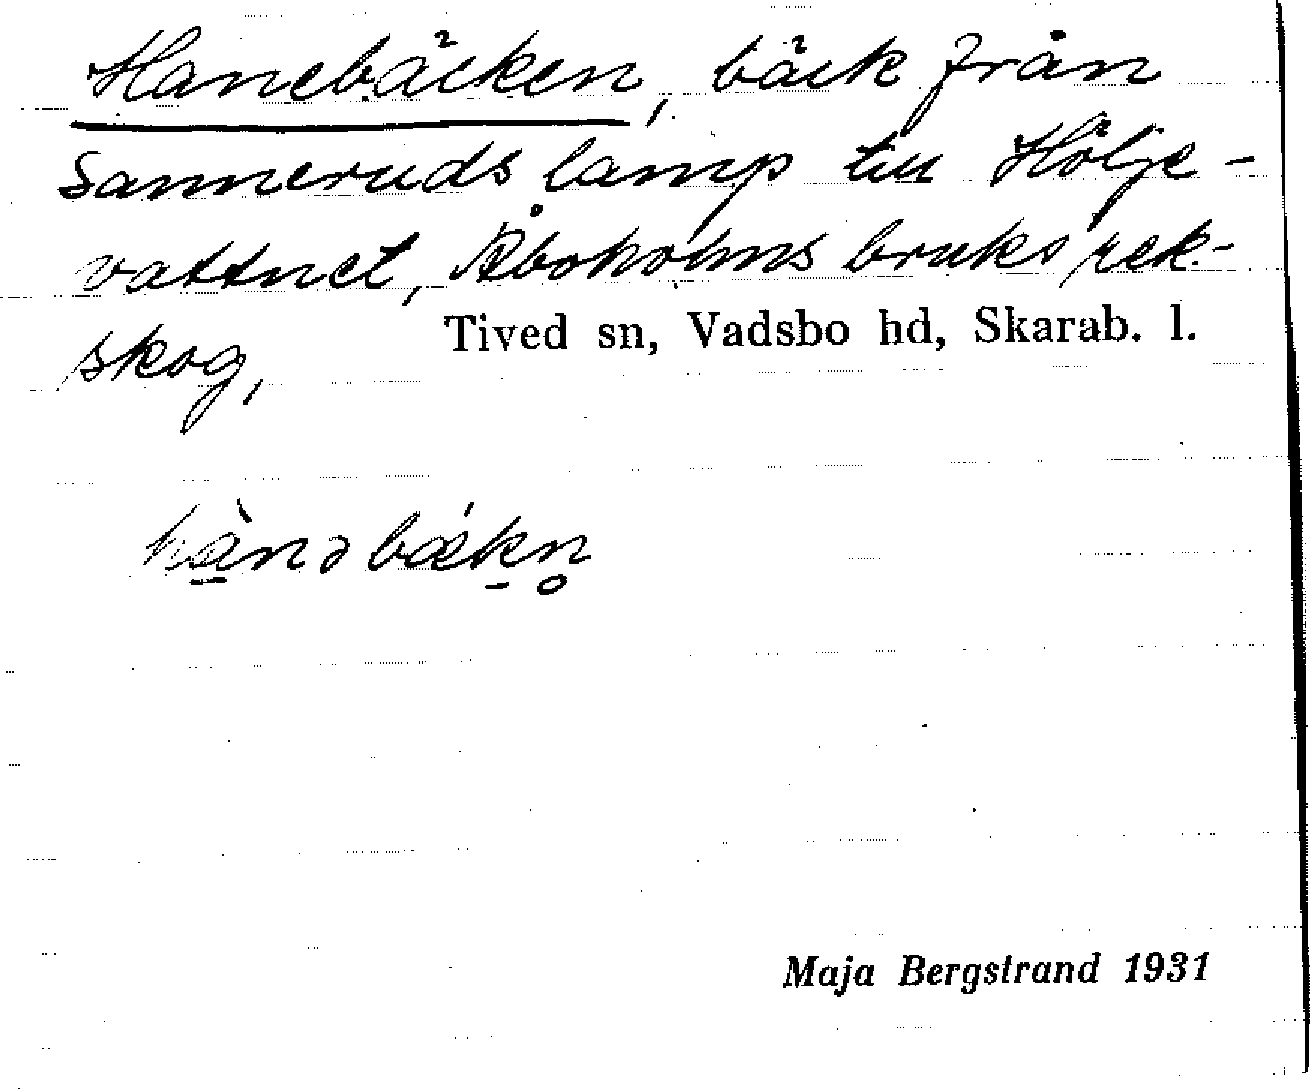 Hanebäcken, bäck från
Sanneruds lamp till Hölje-
vattnet, Åboholms bruks rek-
skog,
Tived sn, Vadsbo hd, Skarab. l.
hànəbækn̥
Maja Bergstrand 1931